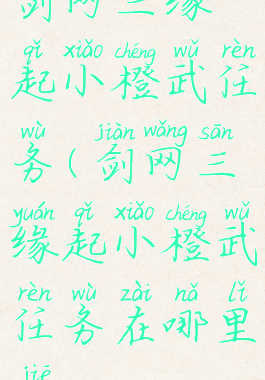 剑网三缘
qǐ xiǎo chéng wǔ rèn
起小橙武任
wù jiàn wǎng sān
务(剑网三
yuán qǐ xiǎo chéng wǔ
缘起小橙武
rèn wù zài nǎ lǐ
任务在哪里
jiē